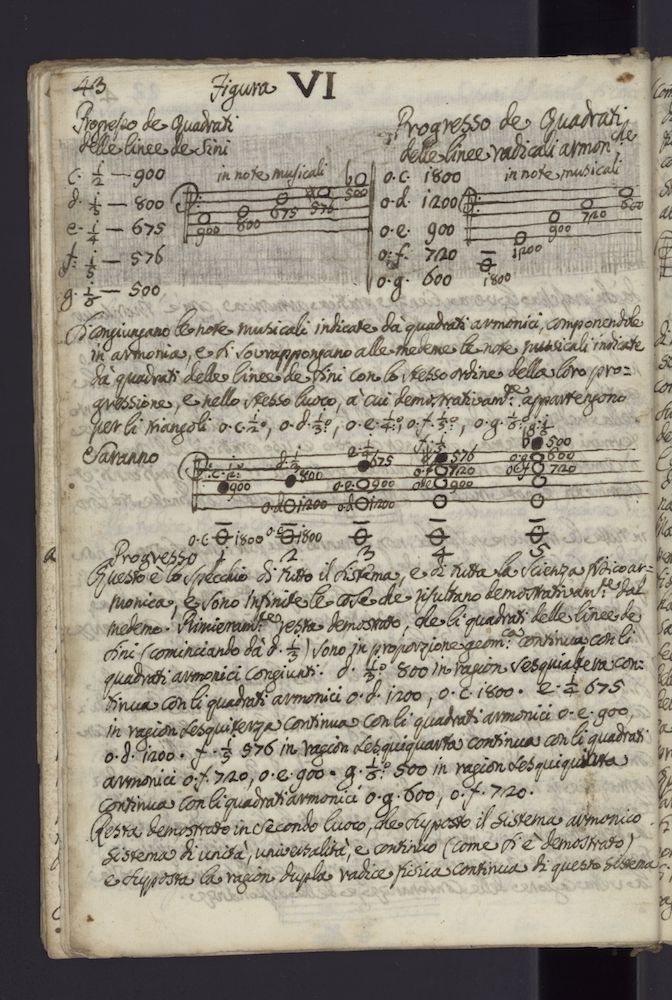 43 Figura VI
Progresso de Quadrati
delle linee de Sini
c. 1/2 — 900
d. 1/3 — 800
e. 1/4 — 675
f. 1/5 — 576
g. 1/6 — 500
in note musicali
900 800 675 576 500
Progresso de Quadrati
delle linee radicali armon.che
o.c. 1800
o.d. 1200
o.e. 900
o.f. 720
o.g. 600
in note musicali
1800 1200 900 720 600
Si congiungano le note musicali indicate da quadrati armonici, componendole
in armonia, e si sovrapongano alle medeme le note musicali indicate
da quadrati delle linee de Sini con lo stesso ordine della loro pro=
gressione, e nello stesso luoco, a cui demostrativam.te appartengono
per li triangoli o.c.1/2°, o.d.1/3°, o.e.1/4°, o.f.1/5°, o.g.1/6°.
Saranno
c.1/2 d.1/3 e.1/4 f.1/5 g.1/6
900 800 675 576 500
o.e. 900 o.f. 720 o.g. 600
o.d. 1200 o.d. 1200 o.e. 900 o.f. 720
o.c. 1800 o.c. 1800
Progresso 1 2 3 4 5
Questo è lo specchio di tutto il sistema, e di tutta la scienza fisico ar=
monica, e sono infinite le cose che risultano demostrativam.te dal
medemo. Primieram.te resta demostrato, che li quadrati delle linee de
Sini (cominciando dà d.1/3) sono in proporzione geom.ca continua con li
quadrati armonici congiunti. d.1/3° 800 in ragion sesquialtera con=
tinua con li quadrati armonici o.d. 1200, o.c. 1800. e.1/4 675
in ragion sesquiterza continua con li quadrati armonici o.e. 900,
o.d. 1200. f.1/5 576 in ragion sesquiquarta continua con li quadrati
armonici o.f. 720, o.e. 900. g.1/6° 500 in ragion sesquiquinta
continua con li quadrati armonici o.g. 600, o.f. 720.
Resta demostrato in secondo luoco, che supposto il sistema armonico
sistema di unità, universalità, e continuo (come si è demostrato)
e supposta la ragion dupla radice fisica continua di questo sistema